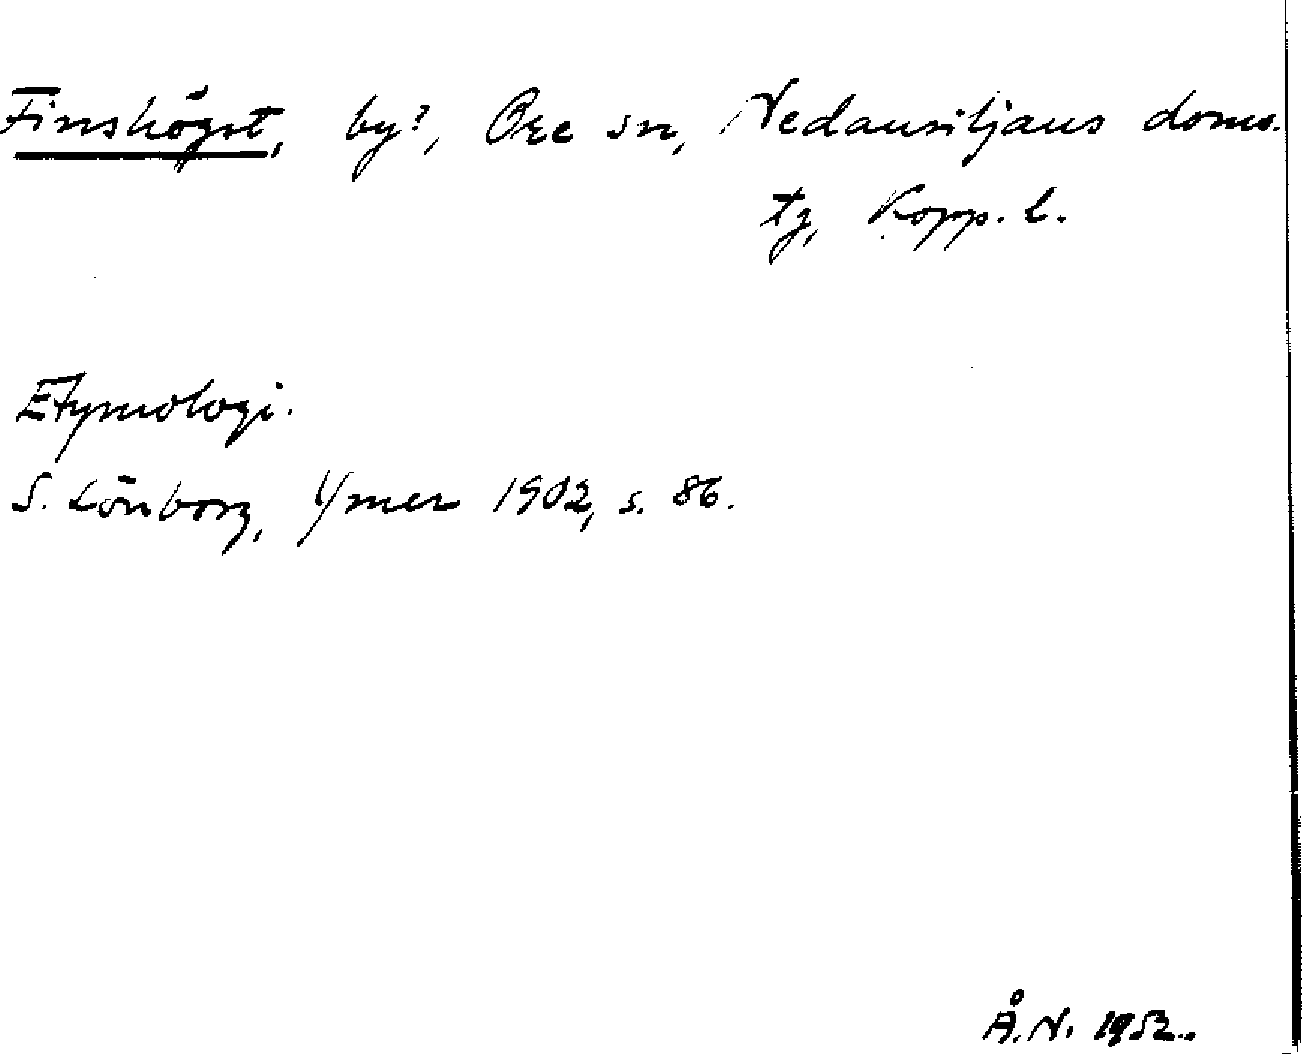 Finshögst, by?, Ore sn, Nedansiljans doms.
tg, Kopp. l.
Etymologi.
S. Lönborg, Ymer 1902, s. 86.
Å. N. 1952.